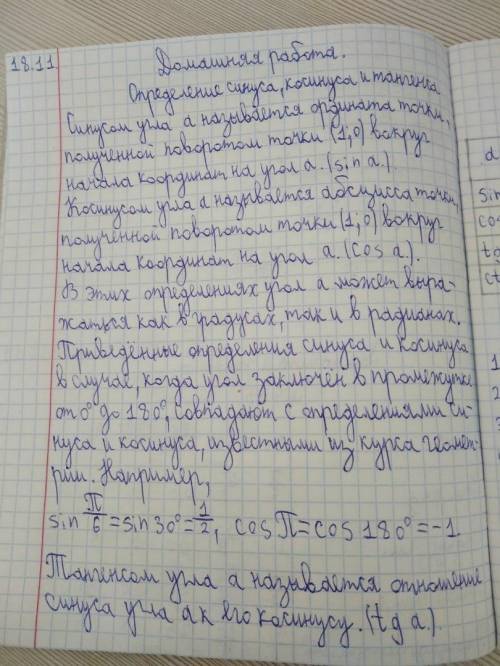 18.11 Домашняя работа.
Определение синуса, косинуса и тангенса
Синусом угла a называется ордината точки,
полученной поворотом точки (1;0) вокруг
начала координат на угол a. (sin a).
Косинусом угла a называется абсцисса точки,
полученной поворотом точки (1;0) вокруг
начала координат на угол a. (cos a).
В этих определениях угол a может выра-
жаться как в градусах, так и в радианах.
Приведённые определения синуса и косинуса
в случае, когда угол заключён в промежутке
от 0° до 180°, совпадают с определениями си-
нуса и косинуса, известными из курса геомет-
рии. Например,
sin π/6 = sin 30° = 1/2, cos π = cos 180° = -1
Тангенсом угла a называется отношение
синуса угла a к его косинусу. (tg a).
a
sin
cos
tg
ct
1
2